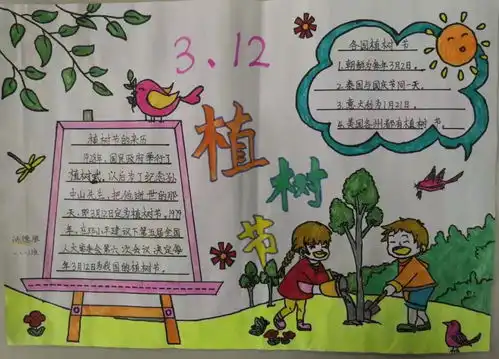 3.12
植树节
植树节的来历
1928年，国民政府举行了
植树式，以后为了纪念孙
中山先生，把他逝世的那
天，即3月12日定为植树节。1979
年，在邓小平建议下第五届全国
人大常委会第六次会议决定每
年3月12日为我国的植树节。
各国植树节
1.朝鲜为每年3月2日。
2.泰国与国庆节同一天。
3.意大利为1月21日。
4.美国各州都有植树节。